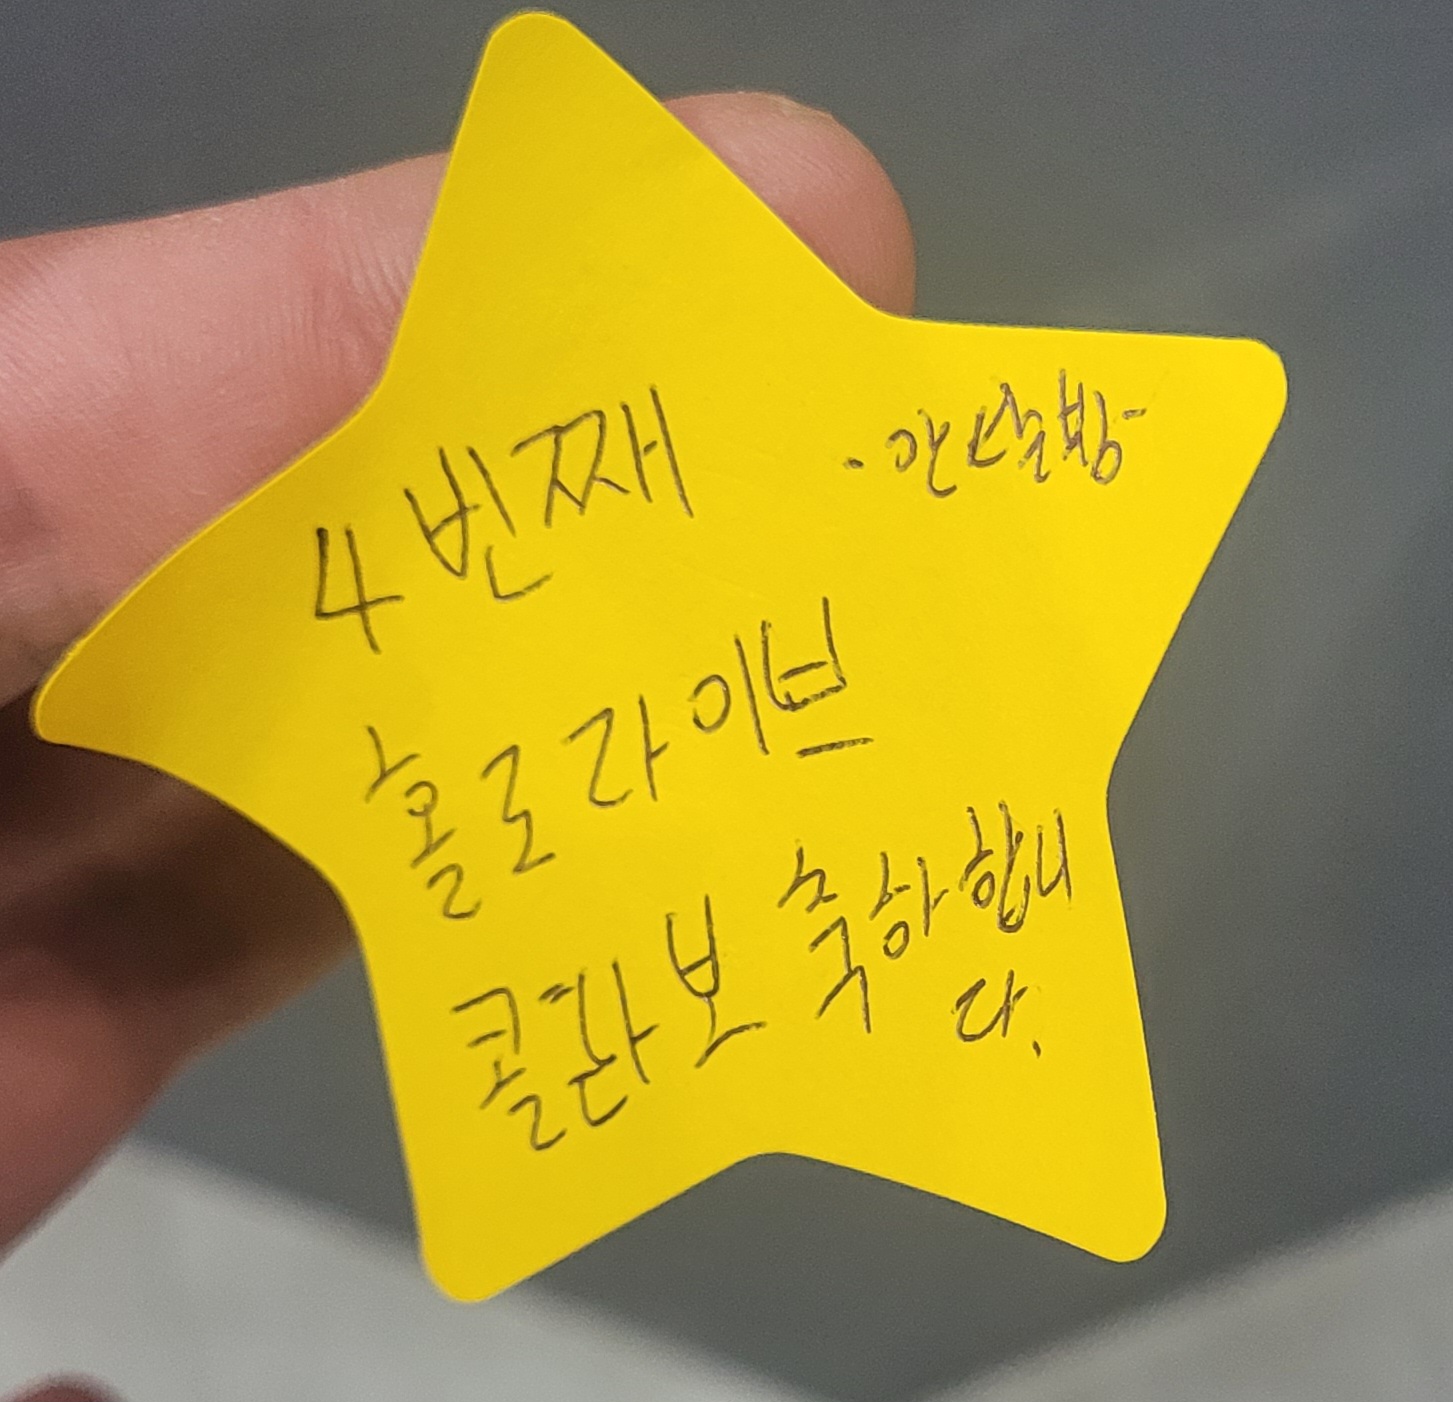 4번째
홀로라이브
콜라보 축하합니
다.